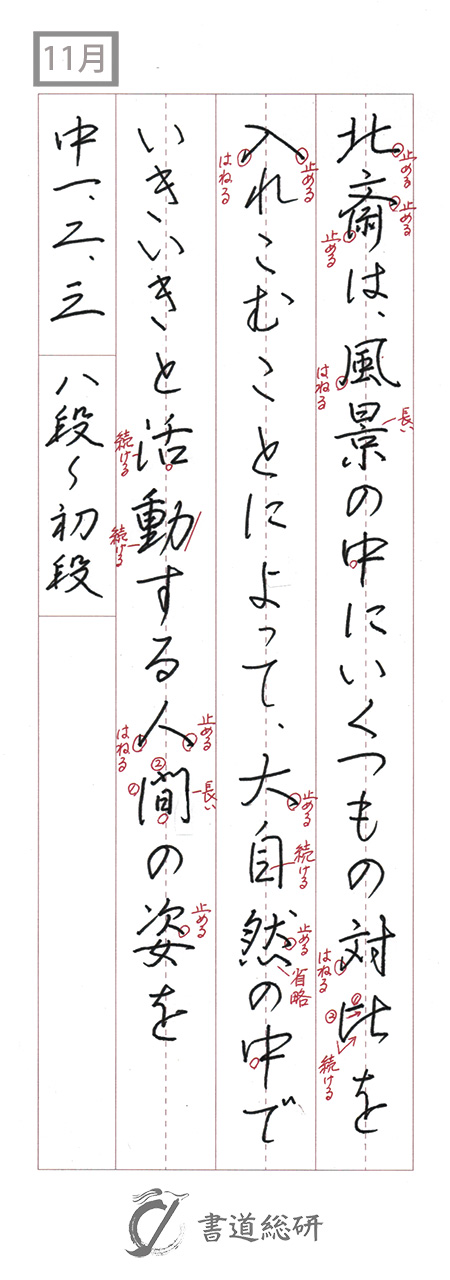 11月
北斎は、風景の中にいくつもの対比を
止める
止める
止める
はねる
長い
はねる
①
②
続ける
入れこむことによって、大自然の中で
止める
はねる
止める
続ける
止める
省略
いきいきと活動する人間の姿を
続ける
続ける
止める
はねる
②
①
長い
止める
中一、二、三
八段〜初段
書道総研